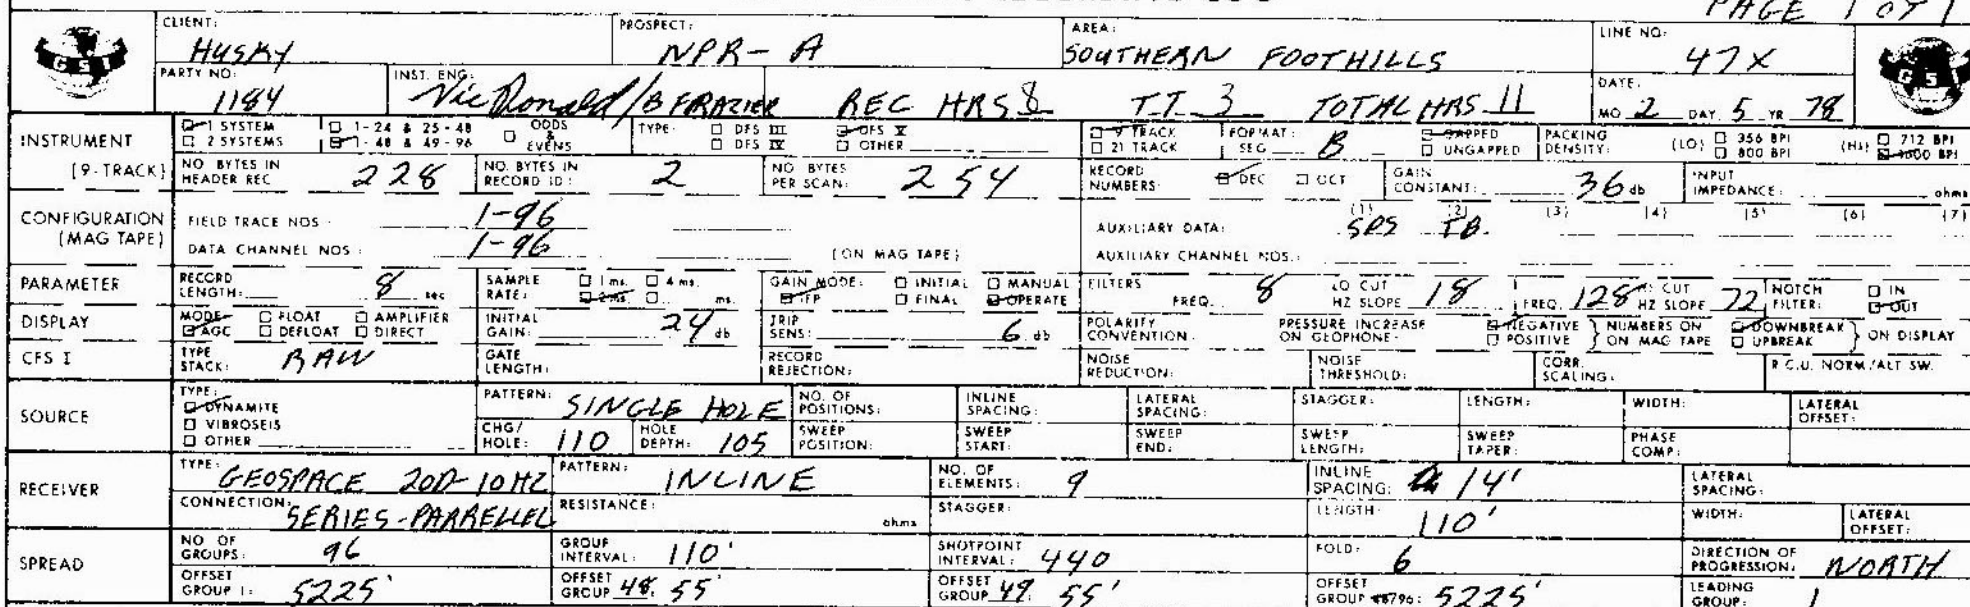 PAGE 1 OF 1
CLIENT: HUSKY PROSPECT: NPR-A AREA: SOUTHERN FOOTHILLS LINE NO: 47X
GSI GSI
PARTY NO: 1184 INST. ENG: Vic Ronald/B FRAZIER REC HRS 8 T.T. 3 TOTAL HRS 11 DATE: MO 2 DAY 5 YR 78
INSTRUMENT 1 SYSTEM 1-24 & 25-48 ODDS & EVENS TYPE: DFS III DFS V 9 TRACK FORMAT: SEG B GAPPED PACKING DENSITY: (LO) 356 BPI (HI) 712 BPI
2 SYSTEMS 1-48 & 49-96 DFS IV OTHER 21 TRACK UNGAPPED 800 BPI 1600 BPI
[9-TRACK] NO BYTES IN HEADER REC 228 NO. BYTES IN RECORD ID: 2 NO BYTES PER SCAN: 254 RECORD NUMBERS: DEC OCT GAIN CONSTANT: 36 db INPUT IMPEDANCE: ohms
CONFIGURATION (MAG TAPE) FIELD TRACE NOS 1-96 AUXILIARY DATA: (1) SPS (2) TB. (3) (4) (5) (6) (7)
DATA CHANNEL NOS: 1-96 (ON MAG TAPE) AUXILIARY CHANNEL NOS.:
PARAMETER RECORD LENGTH: 8 sec SAMPLE RATE: 1 ms. 4 ms. 2 ms. ms. GAIN MODE: INITIAL MANUAL IFP FINAL OPERATE FILTERS FREQ. 8 LO CUT HZ SLOPE 18 FREQ. 128 HI CUT HZ SLOPE 72 NOTCH FILTER: IN OUT
DISPLAY MODE FLOAT AMPLIFIER AGC DEFLOAT DIRECT INITIAL GAIN: 24 db TRIP SENS: 6 db POLARITY CONVENTION: PRESSURE INCREASE ON GEOPHONE: NEGATIVE POSITIVE NUMBERS ON ON MAG TAPE DOWNBREAK UPBREAK ON DISPLAY
CFS I TYPE STACK: RAW GATE LENGTH: RECORD REJECTION: NOISE REDUCTION: NOISE THRESHOLD: CORR. SCALING: R.C.U. NORM/ALT SW.
SOURCE TYPE: DYNAMITE VIBROSEIS OTHER PATTERN: SINGLE HOLE NO. OF POSITIONS: INLINE SPACING: LATERAL SPACING: STAGGER: LENGTH: WIDTH: LATERAL OFFSET:
CHG/HOLE: 110 HOLE DEPTH: 105 SWEEP POSITION: SWEEP START: SWEEP END: SWEEP LENGTH: SWEEP TAPER: PHASE COMP:
RECEIVER TYPE: GEOSPACE 20D-10HZ PATTERN: INLINE NO. OF ELEMENTS: 9 INLINE SPACING: 14' LATERAL SPACING:
CONNECTION: SERIES-PARRELLEL RESISTANCE: ohms STAGGER: LENGTH: 110' WIDTH: LATERAL OFFSET:
SPREAD NO OF GROUPS: 96 GROUP INTERVAL: 110' SHOTPOINT INTERVAL: 440 FOLD: 6 DIRECTION OF PROGRESSION: NORTH
OFFSET GROUP 1: 5225' OFFSET GROUP 48: 55' OFFSET GROUP 49: 55' OFFSET GROUP 96: 5225' LEADING GROUP: 1